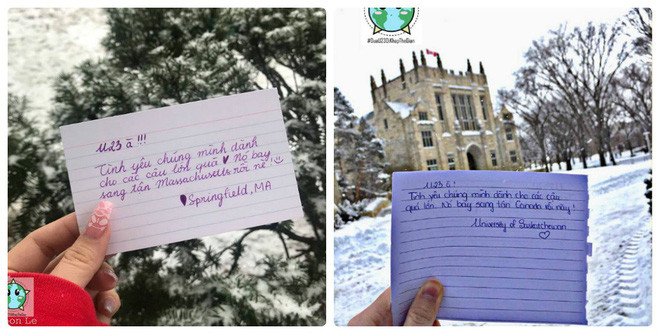 U23 à !!!
Tình yêu chúng mình dành
cho các cậu lớn quá nó bay
sang tận Massachusetts rồi nè!
Springfield, MA
U23 à!
Tình yêu chúng mình dành cho các cậu
quá lớn. Nó bay sang tận Canada rồi này!
University of Saskatchewan